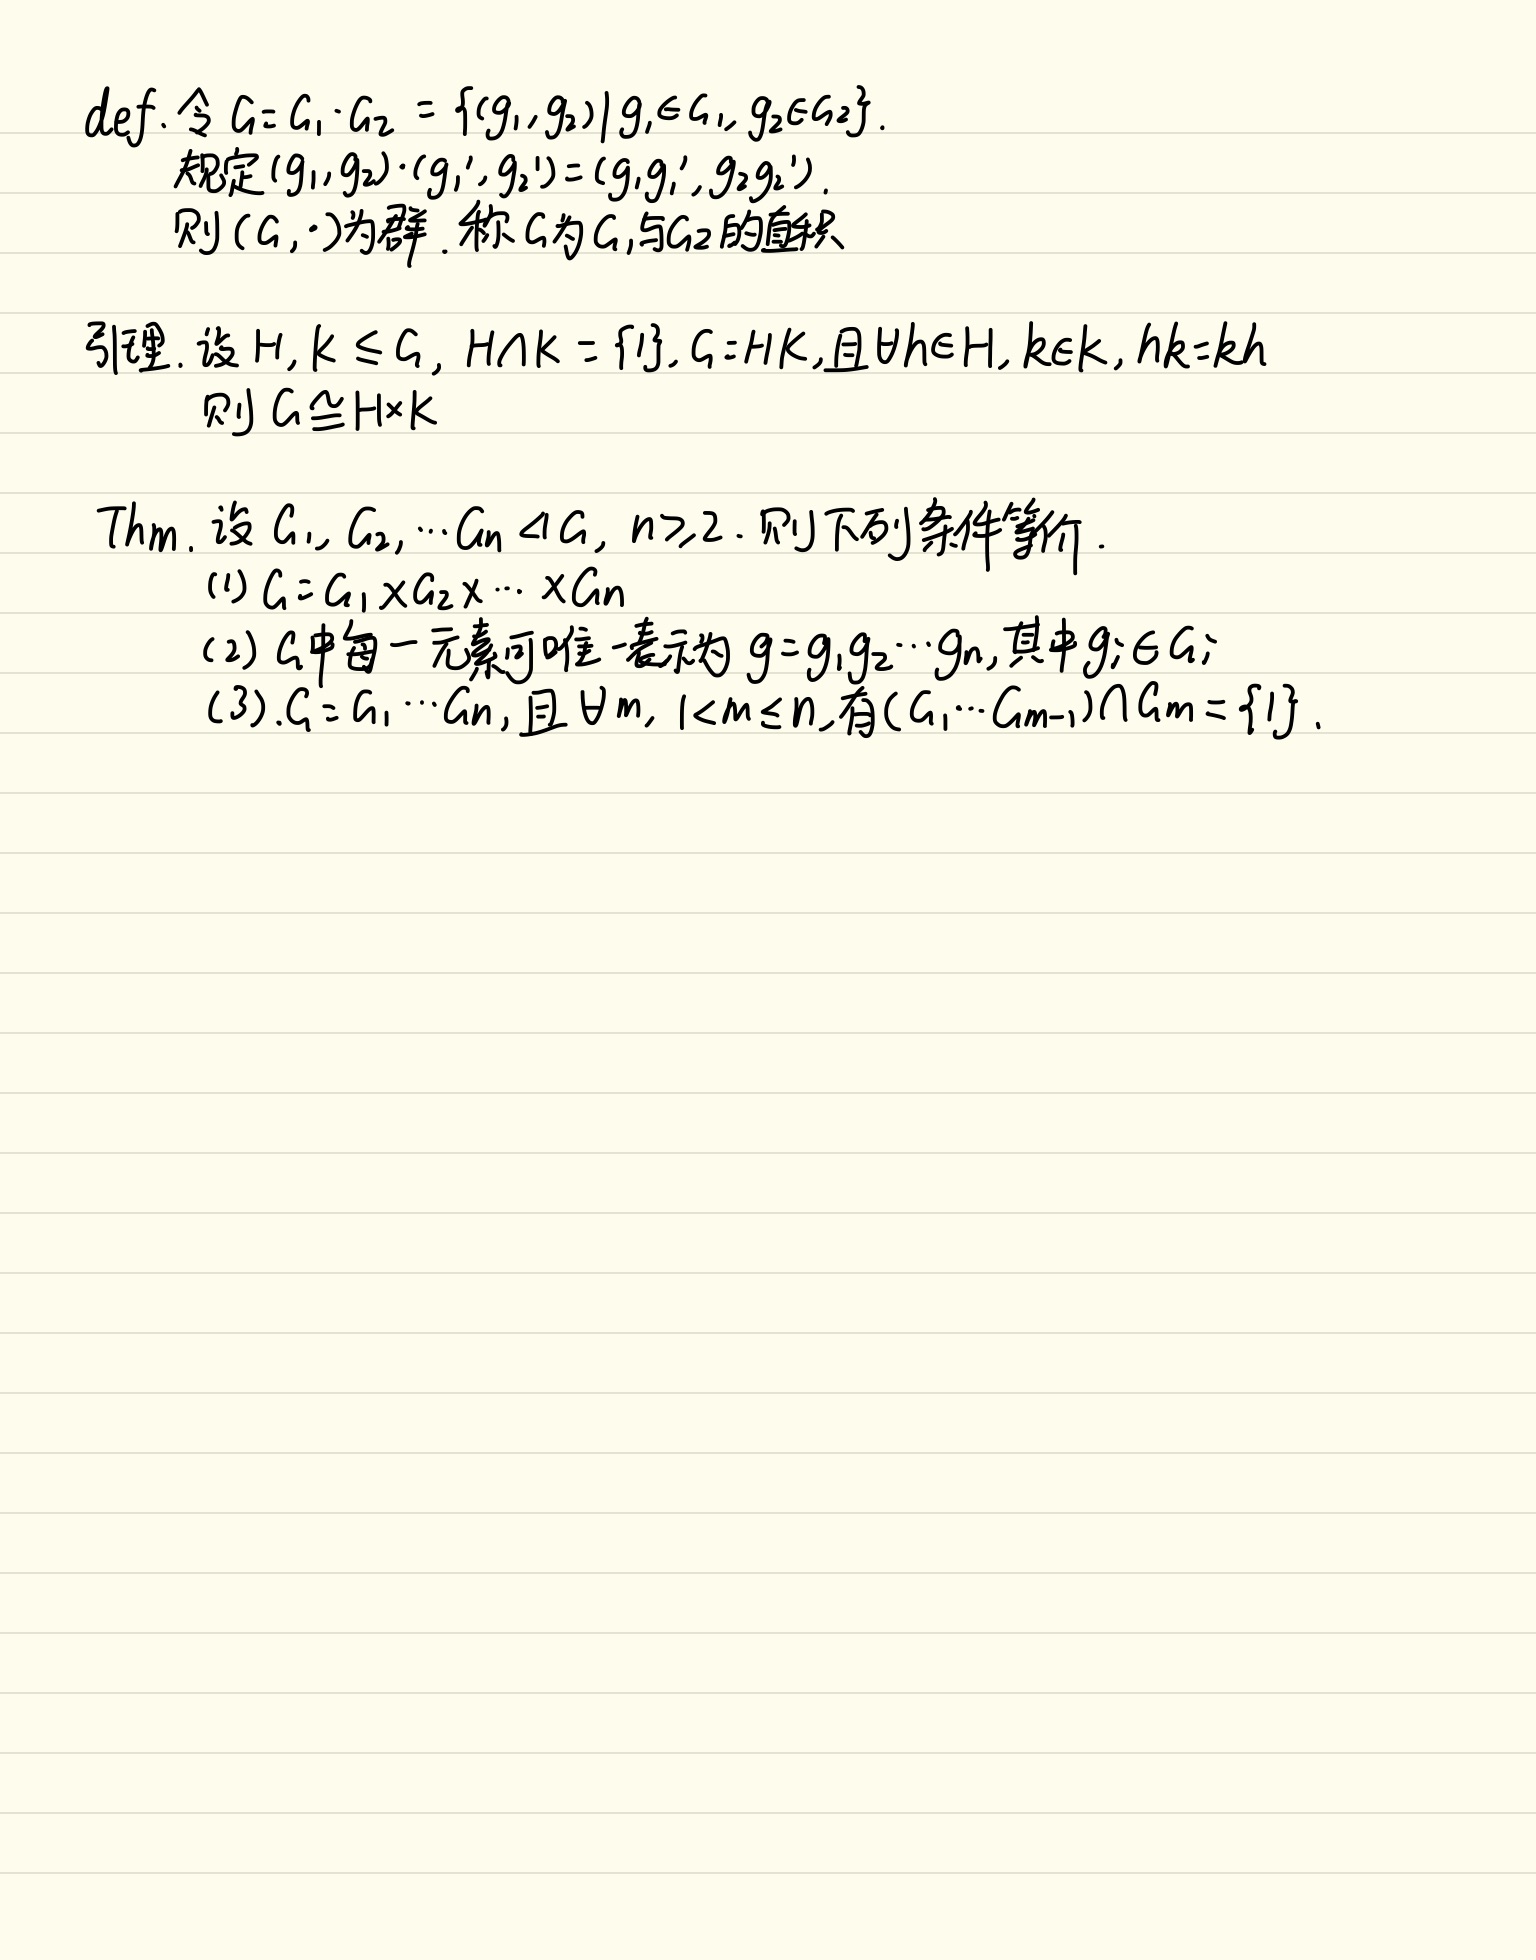 def. 令 G=G₁·G₂ = {(g₁,g₂)|g₁∈G₁, g₂∈G₂}.
规定(g₁,g₂)·(g₁',g₂')=(g₁g₁',g₂g₂').
则(G,·)为群. 称G为G₁与G₂的直积
引理. 设 H, K ≤ G, H∩K = {1}, G=HK,且∀h∈H, k∈K, hk=kh
则 G≌H×K
Thm. 设 G₁, G₂,…Gn ⊲ G, n≥2. 则下列条件等价.
(1) G=G₁×G₂×…×Gn
(2) G中每一元素可唯一表示为 g=g₁g₂…gn,其中gᵢ∈Gᵢ
(3).G=G₁…Gn,且∀m, 1<m≤n,有(G₁…Gm-1)∩Gm={1}.